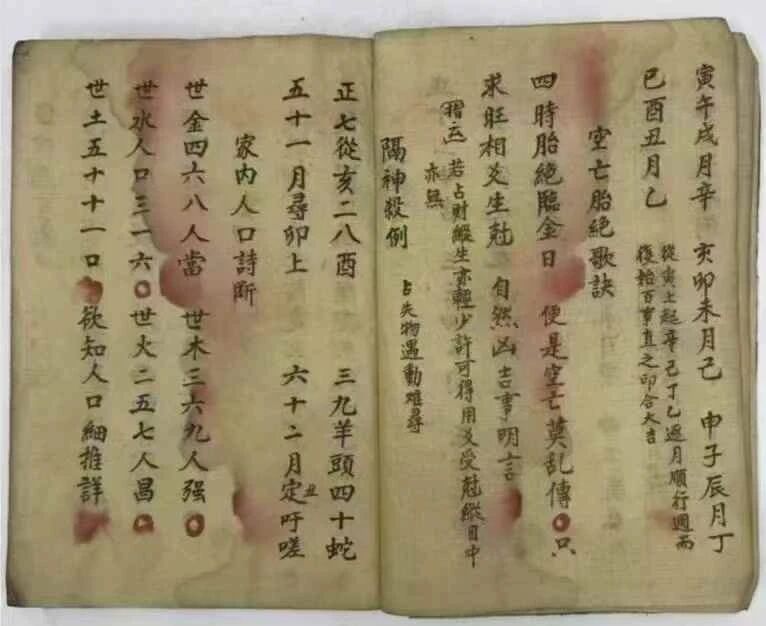 寅午戌月辛　亥卯未月己　申子辰月丁
巳酉丑月乙　從寅上起辛己丁乙逐月順行週而
復始百事直之卽合大吉
空亡胎絶歌訣
四時胎絶臨金日　便是空亡莫乱傳　只
求旺相爻生尅　自然凶吉事明言
若占財縱生亦輕少許可得用爻受尅縱目中
亦無
隔神殺例　占失物遇動难尋
正七從亥二八酉　三九羊頭四十蛇
五十一月尋卯上　六十二月定丑吁嗟
家内人口詩断
世金四六八人當　世木三六九人强
世水人口三一六　世火二五七人昌
世土五十十一口　欲知人口細推詳